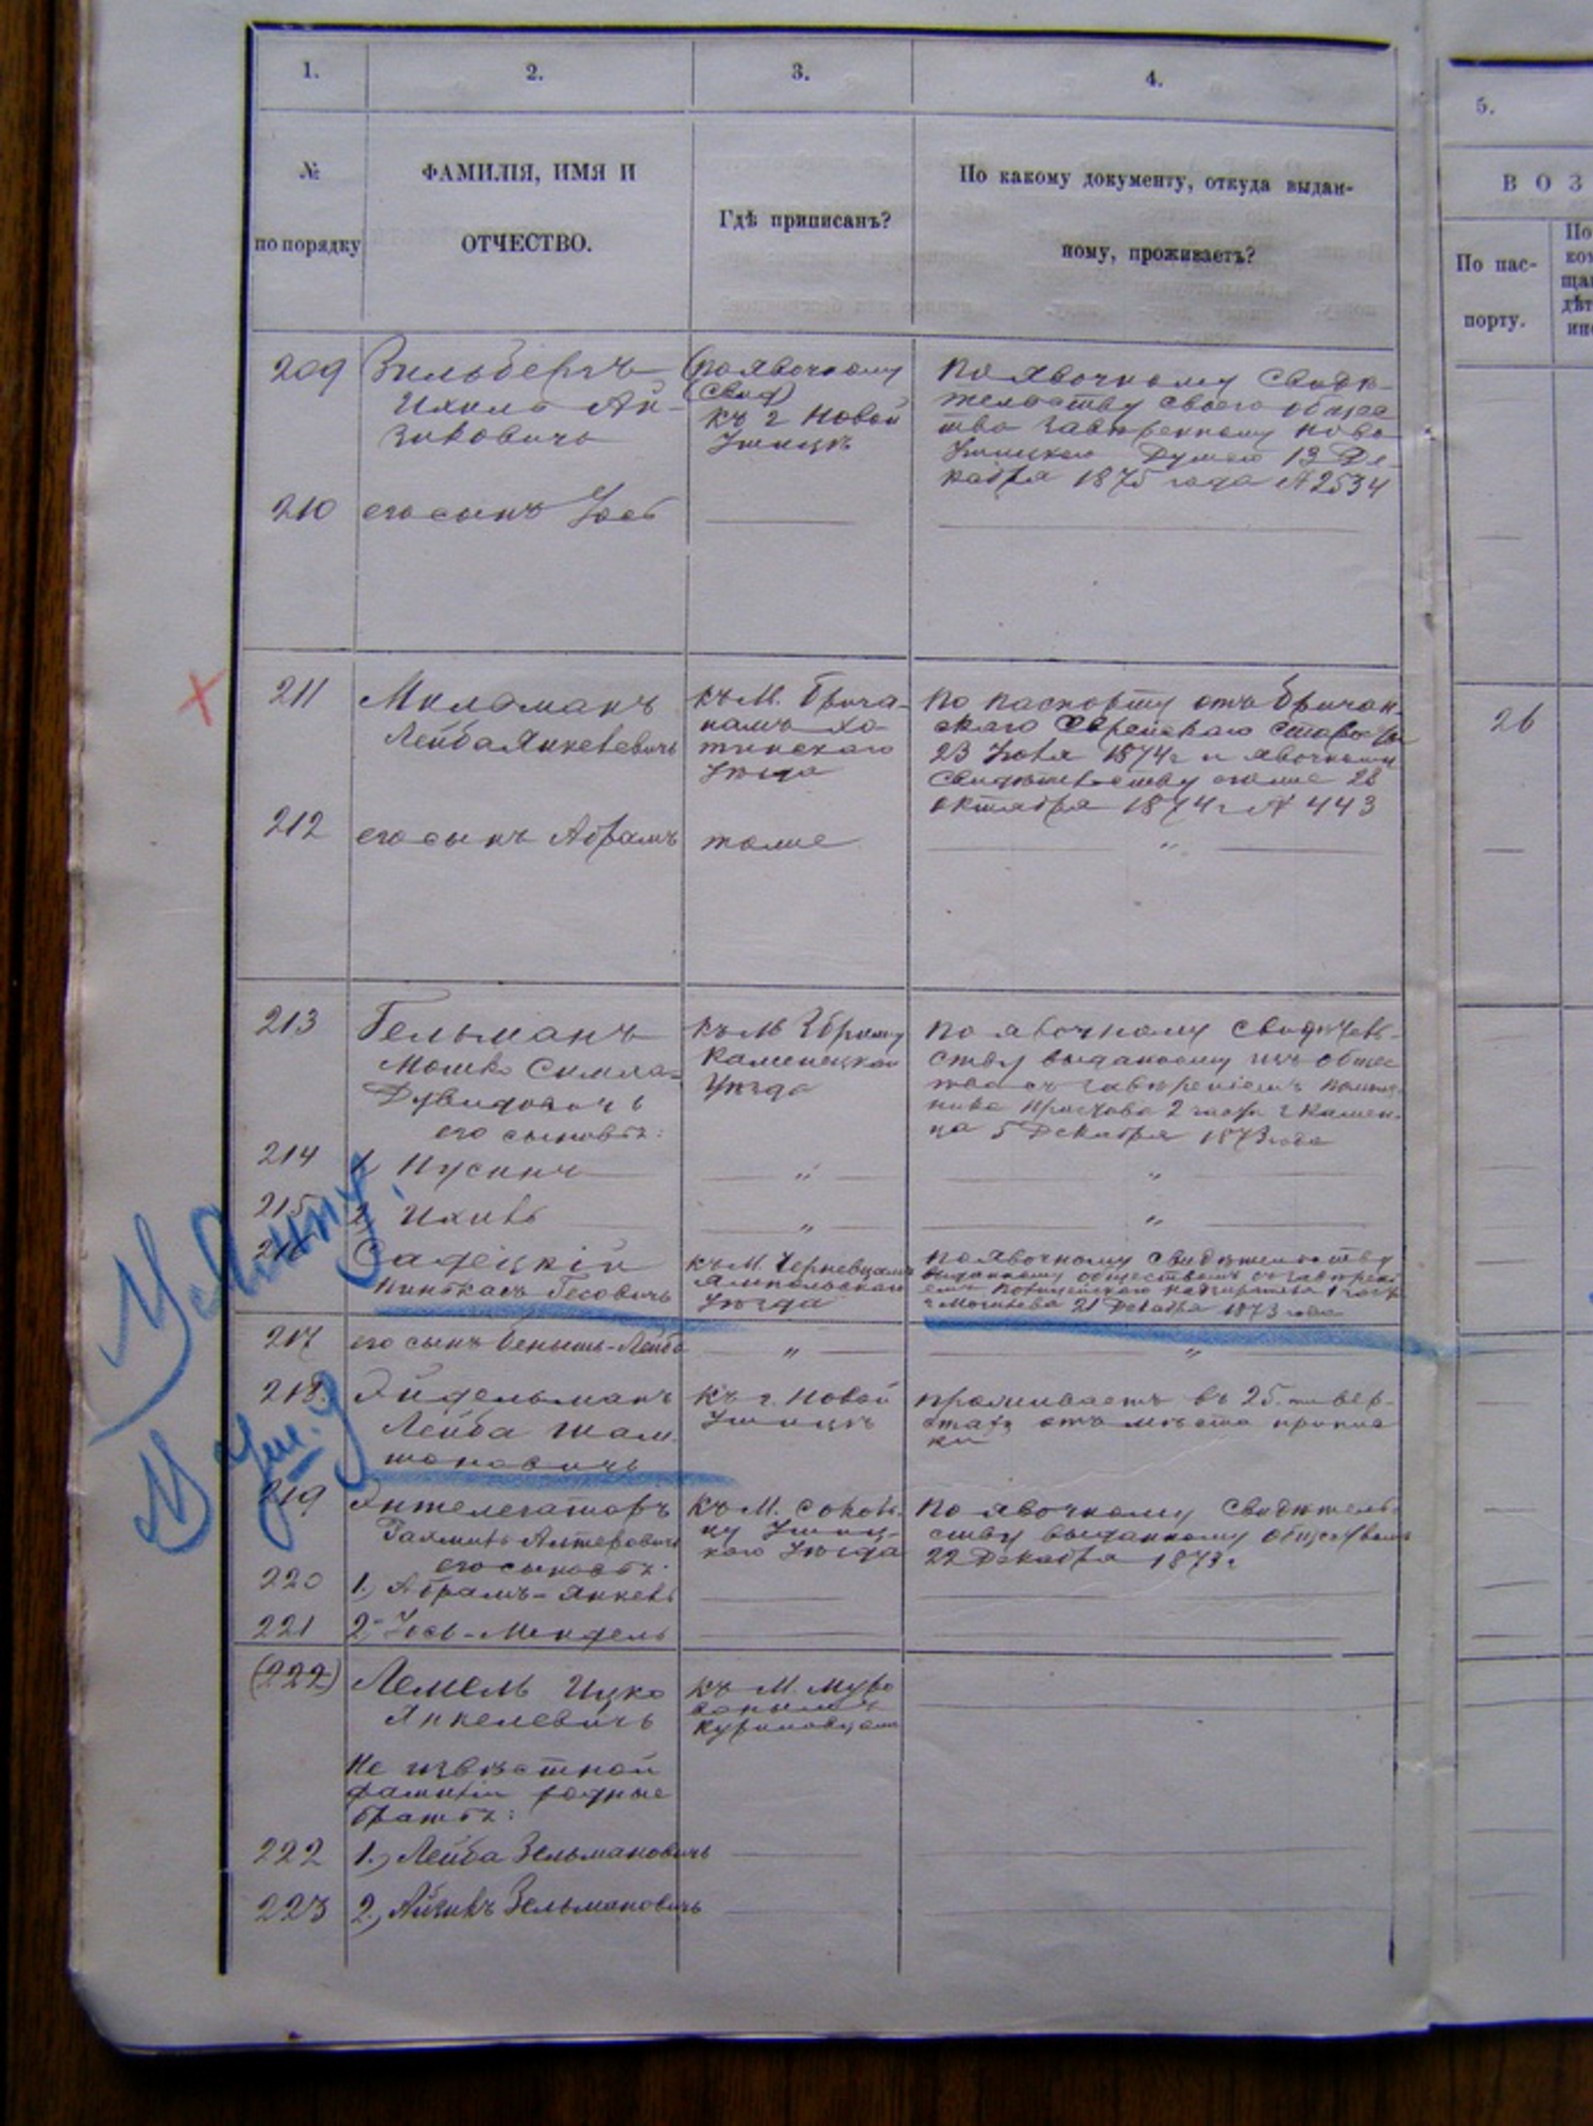 1. 2. 3. 4. 5.
№
по порядку
ФАМИЛІЯ, ИМЯ И
ОТЧЕСТВО.
Гдѣ приписанъ?
По какому документу, откуда выдан-
ному, проживаетъ?
ВОЗ
По пас-
порту.
По
209 Зильбергъ
Ихилъ Ай-
зиковичъ
(по явочному
(свид)
къ г Новой
Ушицѣ
По явочному свидѣ-
тельству своего общес
тва завѣренному Ново
Ушицкою Думою 13 Де-
кабря 1875 года № 2534
210 его сынъ Іось
211 Мильманъ
Лейба Янкелевичъ
къ М. Брича-
намъ Хо-
тинскаго
Уѣзда
По паспорту отъ Бричан-
скаго Еврейскаго старосты
23 Іюля 1874г и явочному
свидѣтельству оголие 28
октября 1874 г № 443
26
212 его сынъ Абрамъ
тоже
"
213 Гельманъ
Мошко Симха-
Дувидовичъ
его сыновья:
къ М Збрижу
Каменецкаго
Уѣзда
по явочному свидѣтель-
ству выданному изъ общес
тва съ завѣреніемъ
Пристава 2 части г Камен-
ца 5 Декабря 1873 года
214 1, Нусинъ " "
215 2, Ихилъ " "
216 Садецкій
Пинхасъ Гесовичъ
къ М. Черневцамъ
Ямпольскаго
Уѣзда
по явочному свидѣтельству
выданному обществомъ съ завѣрені
емъ Полицейскаго надзирателя 1 части
г Могилева 21 Декабря 1873 года
217 его сынъ Беньишъ-Лейба " "
218. Эйдельманъ
Лейба Шам-
шоновичъ
къ г. Новой
Ушицѣ
проживаетъ въ 25-ти вер-
стахъ отъ мѣста припис
ки
219
его сыновья:
къ М. Соколь-
цу Ушиц-
каго Уѣзда
По явочному свидѣтель-
ству выданному обществомъ
22 Декабря 1873 г
220 1, Абрамъ-Янкель
221 2, Іось-Мендель
(222) Лемель Ицко
Янкелевичъ
къ М. Муро
ванымъ
Куриловцамъ
Не извѣстной
фамиліи родные
братья:
222 1., Лейба Зельмановичъ
223 2., Айзикъ Зельмановичъ